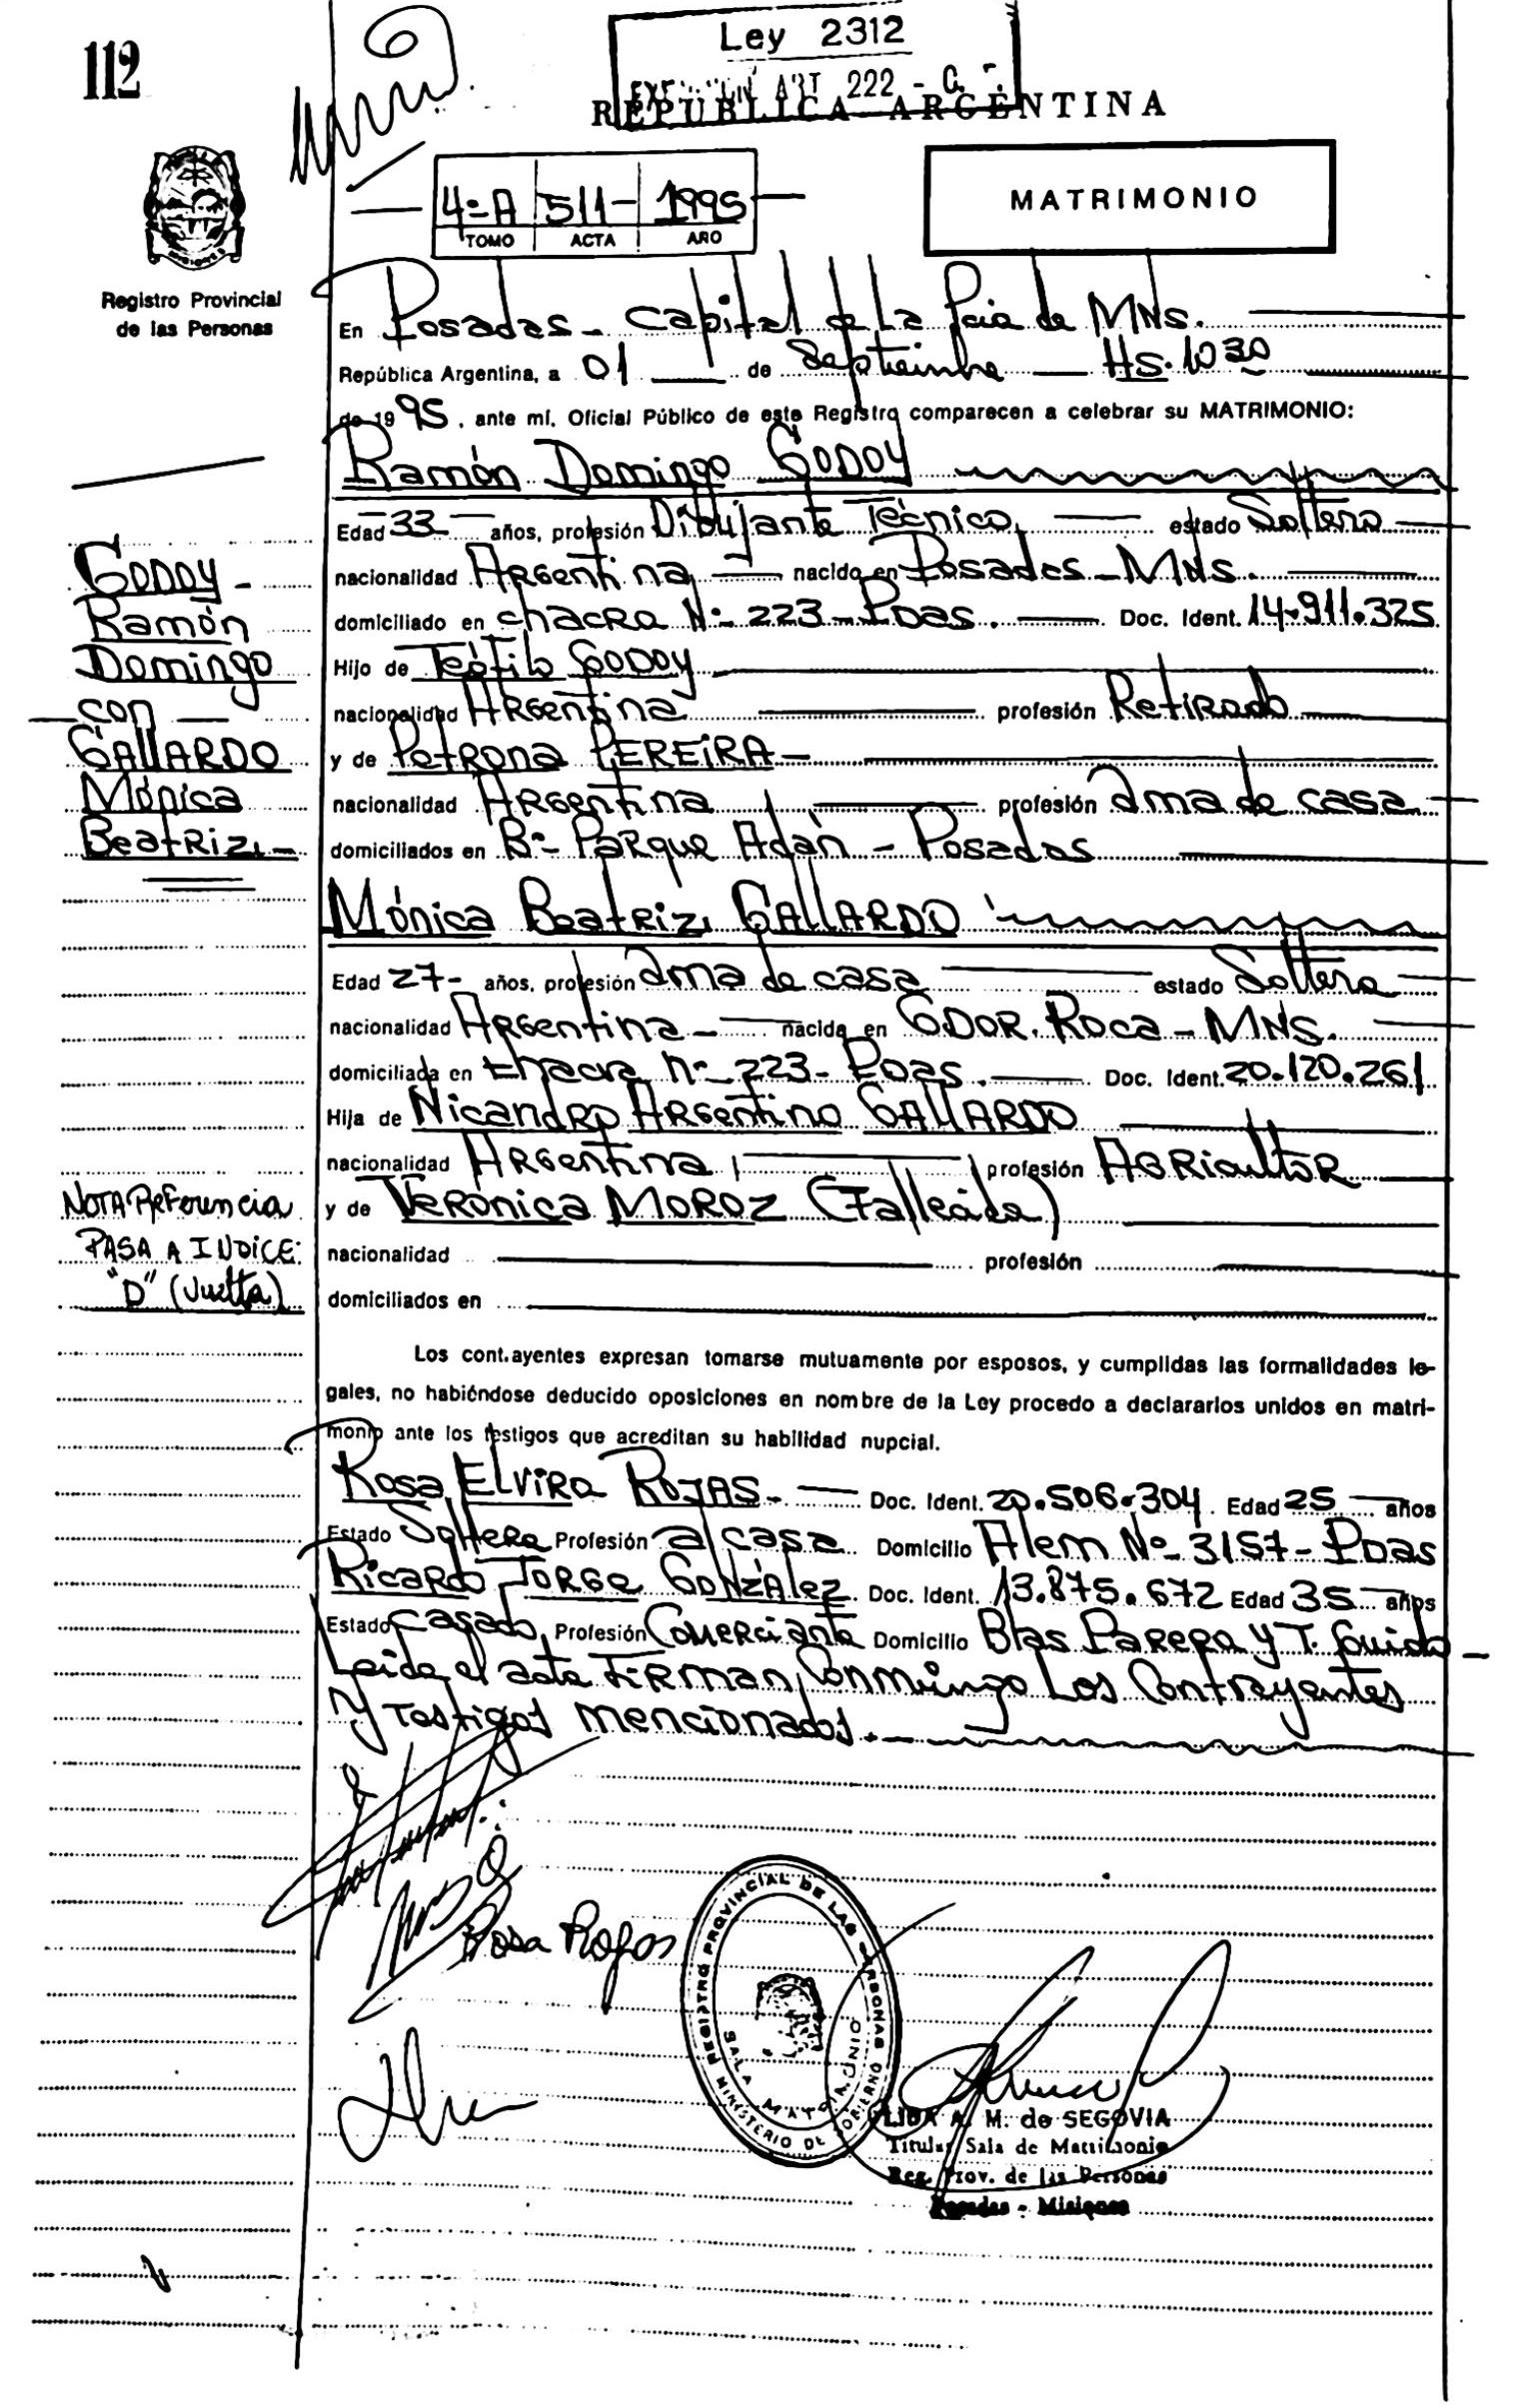 112
Ley 2312
ART 222 -
REPUBLICA ARGENTINA
4º A 511- 1995
TOMO ACTA AÑO
MATRIMONIO
Registro Provincial
de las Personas
En Posadas - Capital de La Pcia de MNS.
República Argentina, a 01 de Septiembre HS. 10 30
de 1995, ante mí, Oficial Público de este Registro comparecen a celebrar su MATRIMONIO:
Ramón Domingo GODOY
Edad 33 años, profesión Dibujante Técnico, estado Soltero
nacionalidad Argentina nacido en Posadas - MNS.
domiciliado en chacra Nº 223 - Pdas. Doc. Ident. 14.911.325
Hijo de Teófilo GODOY
nacionalidad Argentina profesión Retirado
y de Petrona PEREIRA -
nacionalidad Argentina profesión ama de casa
domiciliados en Bº Parque Adán - Posadas
GODOY -
Ramón
Domingo
con
GALLARDO
Mónica
Beatriz. -
Mónica Beatriz GALLARDO
Edad 27 - años, profesión ama de casa estado Soltera
nacionalidad Argentina - nacida en GDOR. Roca - MNS.
domiciliada en chacra nº 223 - Pdas. Doc. Ident. 20.120.261
Hija de Nicandro Argentino GALLARDO
nacionalidad Argentina, profesión Agricultor
y de Verónica MOROZ (Fallecida)
nacionalidad profesión
domiciliados en
NOTA Referencia
PASA A INDICE:
"D" (vuelta)
Los cont.ayentes expresan tomarse mutuamente por esposos, y cumplidas las formalidades le-
gales, no habiéndose deducido oposiciones en nombre de la Ley procedo a declararlos unidos en matri-
monio ante los testigos que acreditan su habilidad nupcial.
Rosa Elvira ROJAS. - Doc. Ident. 20.506.304 Edad 25 años
Estado Soltera Profesión a/casa Domicilio Alem Nº 3157 - Pdas
Ricardo Jorge González Doc. Ident. 13.875.672 Edad 35 años
Estado casado, Profesión Comerciante Domicilio Blas Parera y T. Guido -
Leida el acta FIRMAN Conmingo Los Contrayentes
y Testigos mencionados. -
Rosa Rojas
REGISTRO PROVINCIAL DE LAS PERSONAS
SALA MATRIMONIO
MINISTERIO DE GOBIERNO
LIDA A. M. de SEGOVIA
Titular Sala de Matrimonio
Reg. Prov. de las Personas
Posadas - Misiones